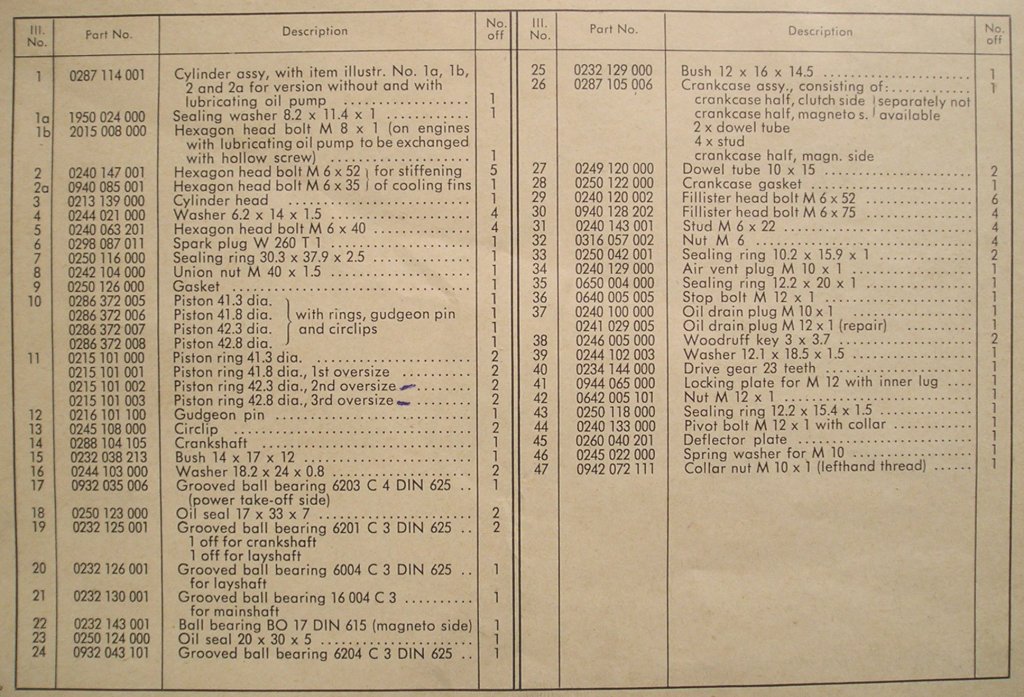 Ill. No. Part No. Description No. off
1 0287 114 001 Cylinder assy, with item illustr. No. 1a, 1b,
2 and 2a for version without and with
lubricating oil pump .................. 1
1a 1950 024 000 Sealing washer 8.2 x 11.4 x 1 .............. 1
1b 2015 008 000 Hexagon head bolt M 8 x 1 (on engines
with lubricating oil pump to be exchanged
with hollow screw) .................... 1
2 0240 147 001 Hexagon head bolt M 6 x 52 } for stiffening 5
2a 0940 085 001 Hexagon head bolt M 6 x 35 } of cooling fins 1
3 0213 139 000 Cylinder head ........................ 1
4 0244 021 000 Washer 6.2 x 14 x 1.5 .................... 4
5 0240 063 201 Hexagon head bolt M 6 x 40 .............. 4
6 0298 087 011 Spark plug W 260 T 1 .................... 1
7 0250 116 000 Sealing ring 30.3 x 37.9 x 2.5 .............. 1
8 0242 104 000 Union nut M 40 x 1.5 .................... 1
9 0250 126 000 Gasket .............................. 1
10 0286 372 005 Piston 41.3 dia. 1
0286 372 006 Piston 41.8 dia. } with rings, gudgeon pin 1
0286 372 007 Piston 42.3 dia. } and circlips 1
0286 372 008 Piston 42.8 dia. 1
11 0215 101 000 Piston ring 41.3 dia. .................... 2
0215 101 001 Piston ring 41.8 dia., 1st oversize .......... 2
0215 101 002 Piston ring 42.3 dia., 2nd oversize ........ 2
0215 101 003 Piston ring 42.8 dia., 3rd oversize ........ 2
12 0216 101 100 Gudgeon pin .......................... 1
13 0245 108 000 Circlip .............................. 2
14 0288 104 105 Crankshaft .......................... 1
15 0232 038 213 Bush 14 x 17 x 12 ...................... 1
16 0244 103 000 Washer 18.2 x 24 x 0.8 .................. 2
17 0932 035 006 Grooved ball bearing 6203 C 4 DIN 625 .. 1
(power take-off side)
18 0250 123 000 Oil seal 17 x 33 x 7 .................... 2
19 0232 125 001 Grooved ball bearing 6201 C 3 DIN 625 .. 2
1 off for crankshaft
1 off for layshaft
20 0232 126 001 Grooved ball bearing 6004 C 3 DIN 625 .. 1
for layshaft
21 0232 130 001 Grooved ball bearing 16 004 C 3 .......... 1
for mainshaft
22 0232 143 001 Ball bearing BO 17 DIN 615 (magneto side) 1
23 0250 124 000 Oil seal 20 x 30 x 5 .................... 1
24 0932 043 101 Grooved ball bearing 6204 C 3 DIN 625 .. 1
Ill. No. Part No. Description No. off
25 0232 129 000 Bush 12 x 16 x 14.5 .................... 1
26 0287 105 006 Crankcase assy., consisting of: .......... 1
crankcase half, clutch side } separately not
crankcase half, magneto s. } available
2 x dowel tube
4 x stud
crankcase half, magn. side
27 0249 120 000 Dowel tube 10 x 15 .................... 2
28 0250 122 000 Crankcase gasket ...................... 1
29 0240 120 002 Fillister head bolt M 6 x 52 .............. 6
30 0940 128 202 Fillister head bolt M 6 x 75 .............. 4
31 0240 143 001 Stud M 6 x 22 ........................ 4
32 0316 057 002 Nut M 6 ............................ 4
33 0250 042 001 Sealing ring 10.2 x 15.9 x 1 .............. 2
34 0240 129 000 Air vent plug M 10 x 1 .................. 1
35 0650 004 000 Sealing ring 12.2 x 20 x 1 .............. 1
36 0640 005 005 Stop bolt M 12 x 1 .................... 1
37 0240 100 000 Oil drain plug M 10 x 1 ................ 1
0241 029 005 Oil drain plug M 12 x 1 (repair) ........ 1
38 0246 005 000 Woodruff key 3 x 3.7 .................. 2
39 0244 102 003 Washer 12.1 x 18.5 x 1.5 ................ 1
40 0234 144 000 Drive gear 23 teeth .................... 1
41 0944 065 000 Locking plate for M 12 with inner lug .... 1
42 0642 005 101 Nut M 12 x 1 ........................ 1
43 0250 118 000 Sealing ring 12.2 x 15.4 x 1.5 ............ 1
44 0240 133 000 Pivot bolt M 12 x 1 with collar .......... 1
45 0260 040 201 Deflector plate ........................ 1
46 0245 022 000 Spring washer for M 10 ................ 1
47 0942 072 111 Collar nut M 10 x 1 (lefthand thread) ...... 1